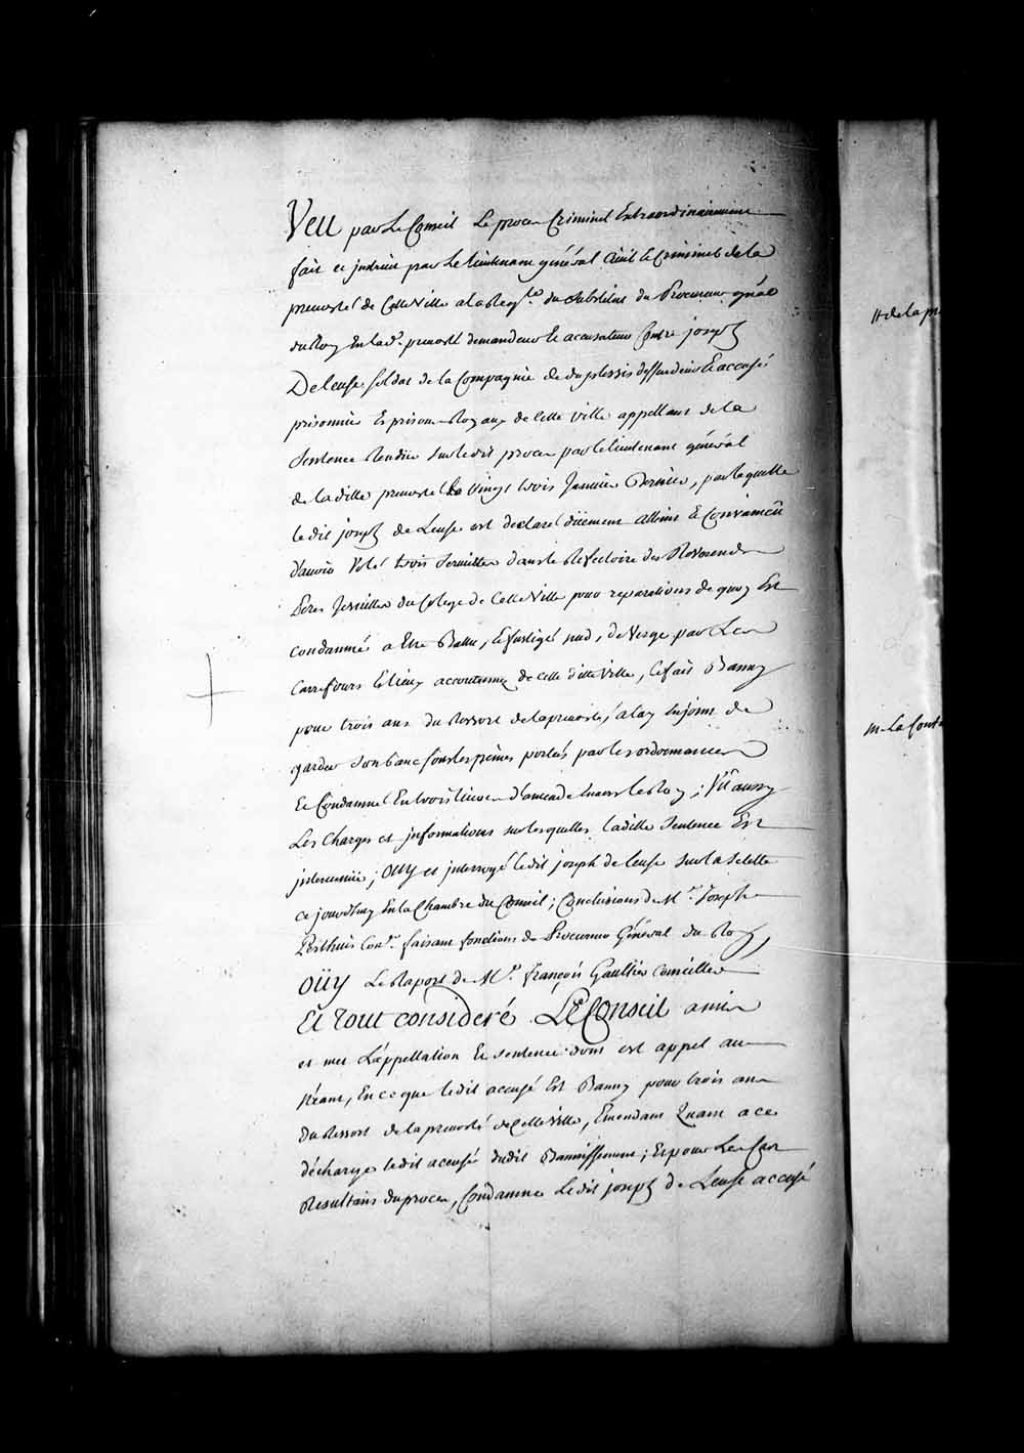 Veu par Le Conseil Le proces Criminel Extraordinairement
fait et instruit par le lieutenant général Civil et Criminel de la
prevosté de Cette Ville a la Req.te du substitut du Procureur gnāl
du Roy En lad.e prevosté demandeur et accusateur Contre joseph
Deleuse soldat de la Compagnie de duplessis deffendeur Et accusé
prisonnier Es prisons Royaux de Cette ville appellant de la
Sentence Rendue sur ledit proces par le lieutenant général
de laditte prevosté le vingt trois Janvier Dernier, par laquelle
ledit joseph de Leuse est declaré düement atteint Et Convaincû
d'avoir Volé trois serviettes dans le Refectoire des Reverends
Peres Jesuittes du College de Cette Ville pour reparations de quoy Est
condamné a Etre Battu, et fustigé nud, de Verge par Les
Carrefours Et lieux accoutumez de cette ditte Ville, Ce fait Banny
pour trois ans du Ressort de la prevosté, a luy Enjoint de
garder son banc sous les peines portées par les ordonnances
Et Condamné En trois livres d'amende Envers le Roy; Vû aussy
Les Charges et jnformations sur lesquelles laditte Sentence Est
jntervenüe; OUY et jnterrogé ledit joseph de leuse sur la Sellette
ce jourd'huy En la Chambre du Conseil; Conclusions de M.r Joseph
Perthuis Con.er faisant fonctions de Procureur Général du Roy,
OÜY Le Raport de M.e françois Gaultier Conseiller
Et Tout consideré LE Conseil a mis
et met L'appellation Et sentence dont est appel au
Néant, En ce que ledit accusé Est Banny pour trois ans
du Ressort de la prevosté de Cette Ville, Emendant Quant a ce
décharge ledit accusé dudit Bannissement; Et pour Les Cas
Resultans du proces, Condamne Ledit joseph de Leuse accusé
de la
m. La font